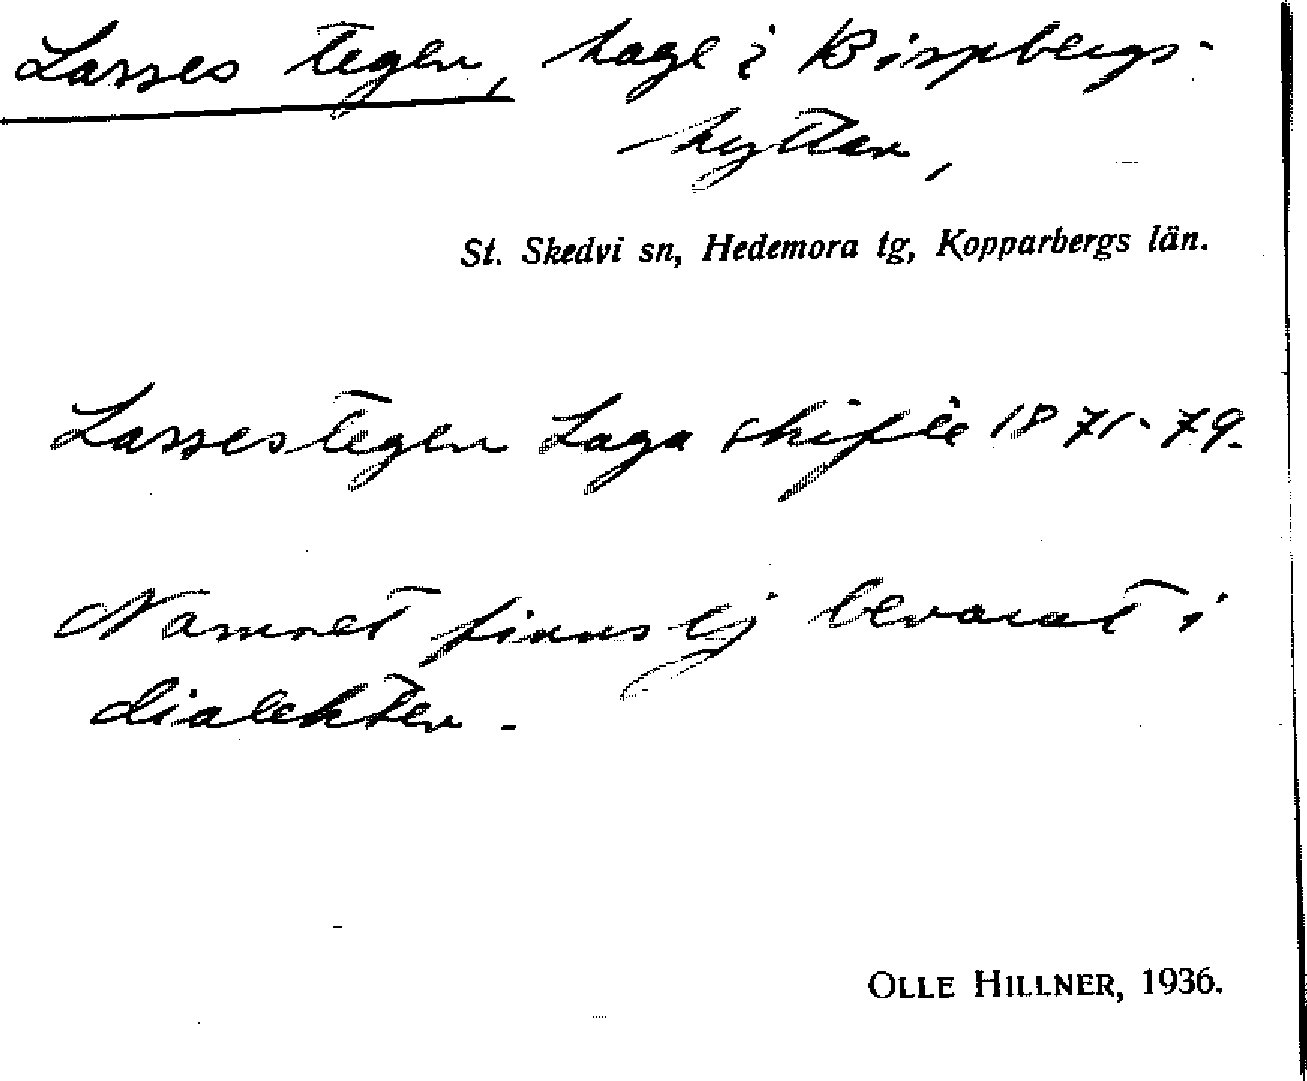 Lasses tegen, hage i Bispbergs-
hyttan,
St. Skedvi sn, Hedemora tg, Kopparbergs län.
Lassestegen Laga skifte 1871-79.
Namnet finns ej bevarat i
dialekten.
OLLE HILLNER, 1936.